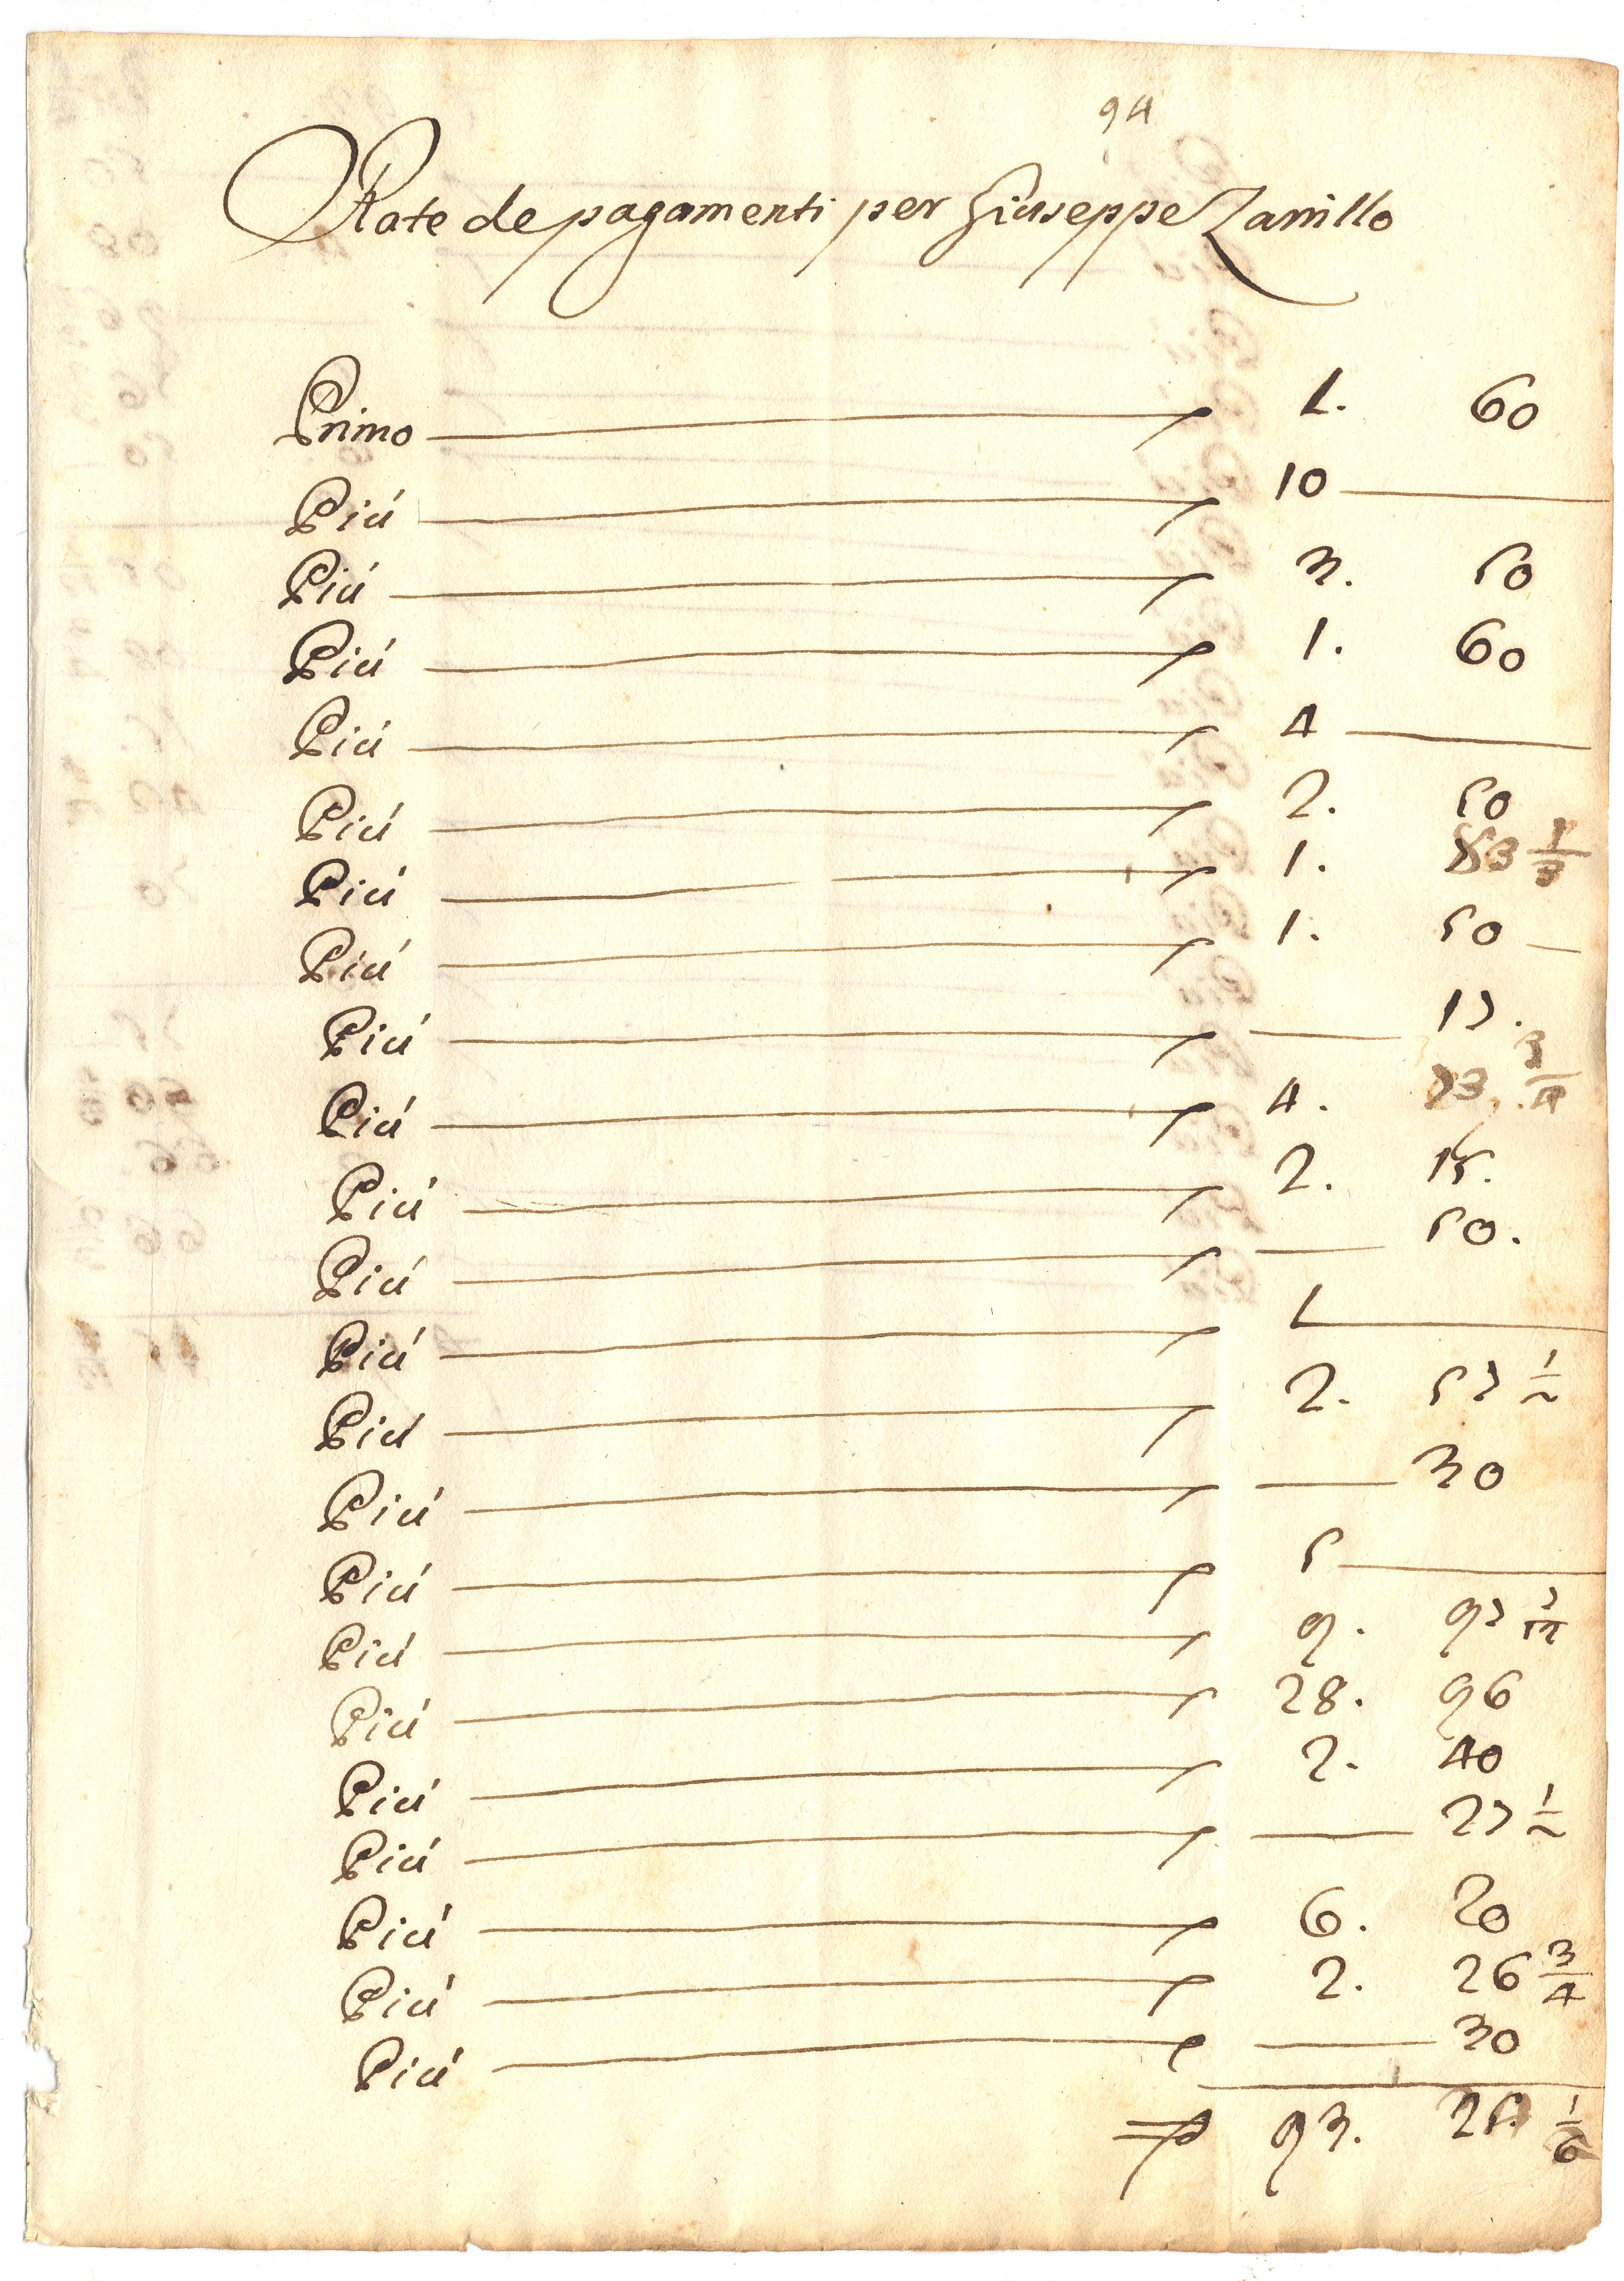 94
Rate de pagamenti per Giuseppe Zanillo
Primo 1. 60
Più 10
Più 3. 50
Più 1. 60
Più 4
Più 2. 50
Più 1. 1/3
Più 1. 50
Più 17.
Più 4. 73 3/4
Più 2. 15.
Più 50.
Più 1
Più 2. 57 1/2
Più 30
Più 5
Più 9. 97 7/12
Più 28. 96
Più 2. 40
Più 27 1/2
Più 6. 20
Più 2. 26 3/4
Più 30
93. 25 1/6